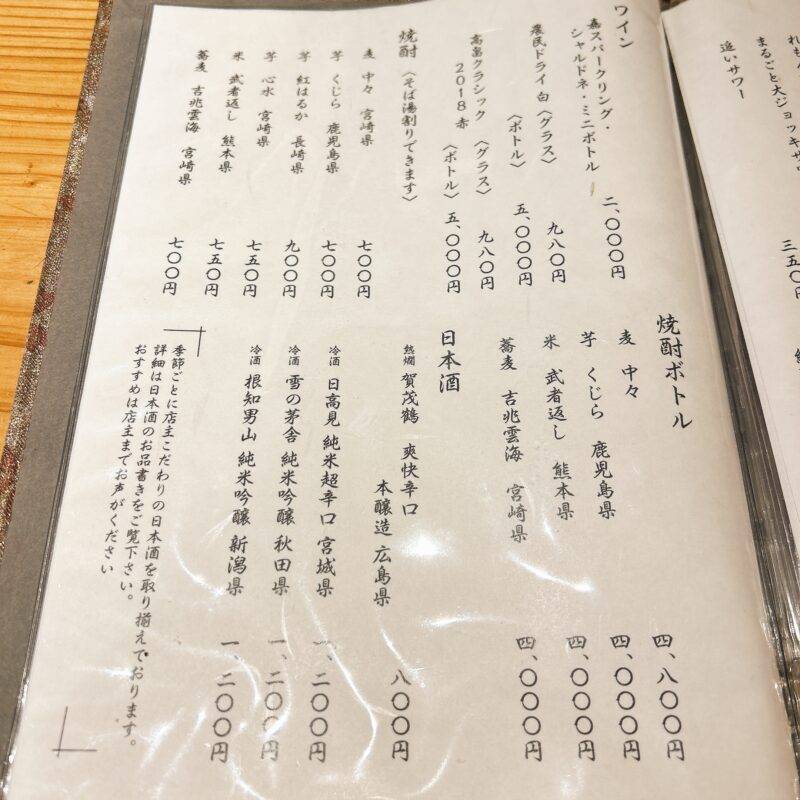 まるごと大ジョッキサワ
追いサワー
三五〇
ワイン
嘉スパークリング・
シャルドネ・ミニボトル 二、〇〇〇円
農民ドライ 白〈グラス〉 九八〇円
〈ボトル〉 五、〇〇〇円
高畠クラシック 〈グラス〉 九八〇円
2018 赤 〈ボトル〉 五、〇〇〇円
焼酎 〈そば湯割りできます〉
麦 中々 宮崎県 七〇〇円
芋 くじら 鹿児島県 七〇〇円
芋 紅はるか 長崎県 九〇〇円
芋 心水 宮崎県 七五〇円
米 武者返し 熊本県 七五〇円
蕎麦 吉兆雲海 宮崎県 七〇〇円
焼酎ボトル
麦 中々 四、八〇〇円
芋 くじら 鹿児島県 四、〇〇〇円
米 武者返し 熊本県 四、〇〇〇円
蕎麦 吉兆雲海 宮崎県 四、〇〇〇円
日本酒
熱燗 賀茂鶴 爽快辛口
本醸造 広島県 八〇〇円
冷酒 日高見 純米超辛口 宮城県 一、二〇〇円
冷酒 雪の茅舎 純米吟醸 秋田県 一、二〇〇円
冷酒 根知男山 純米吟醸 新潟県 一、二〇〇円
季節ごとに店主こだわりの日本酒を取り揃えております。
詳細は日本酒のお品書きをご覧下さい。
おすすめは店主までお声がけください